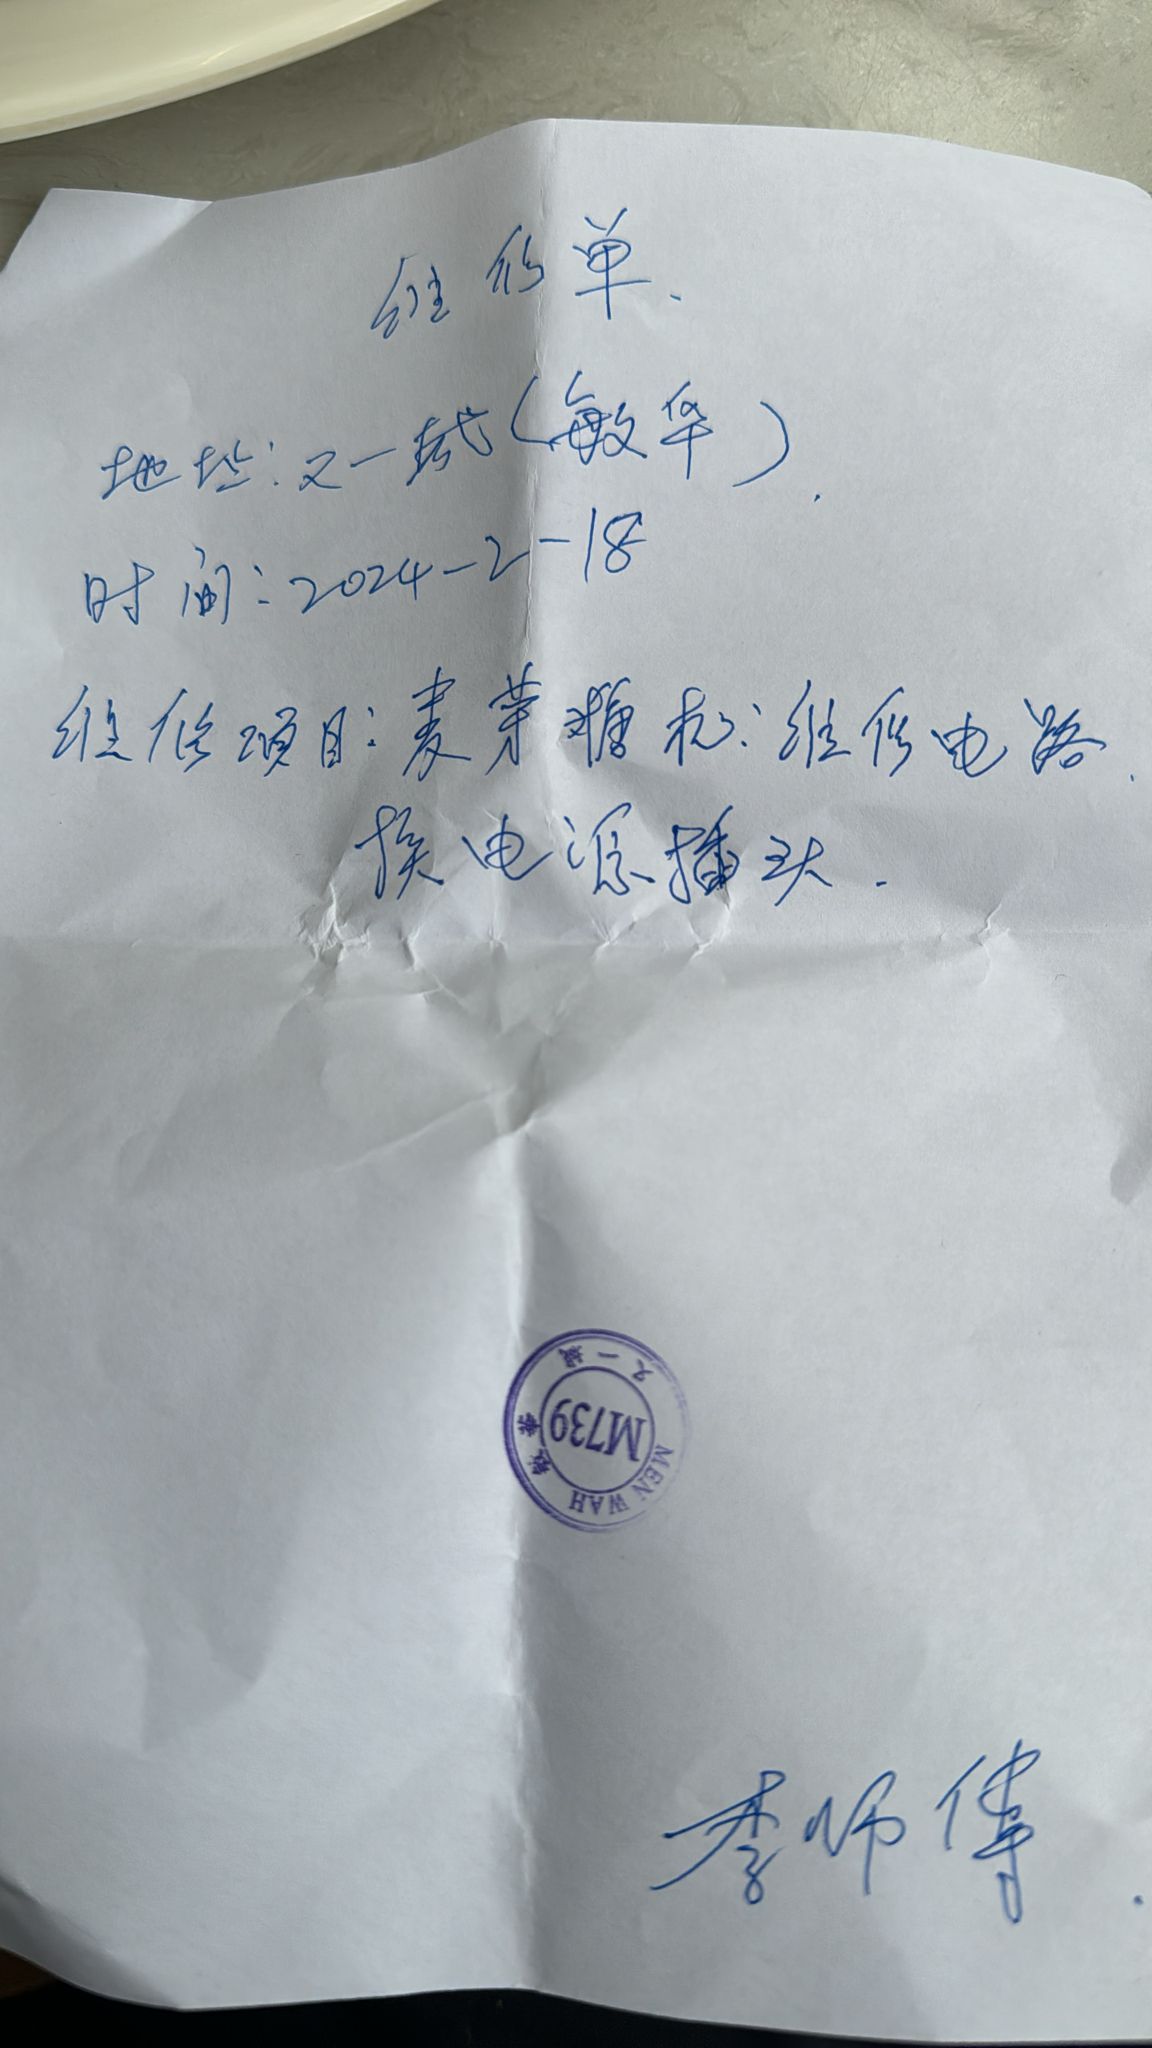 维修单.
地址:又一城(敏华).
时间:2024-2-18
维修项目:麦芽糖机:维修电路.
换电源插头.
又一城
敏華
M739
MEN WAH
李师傅.